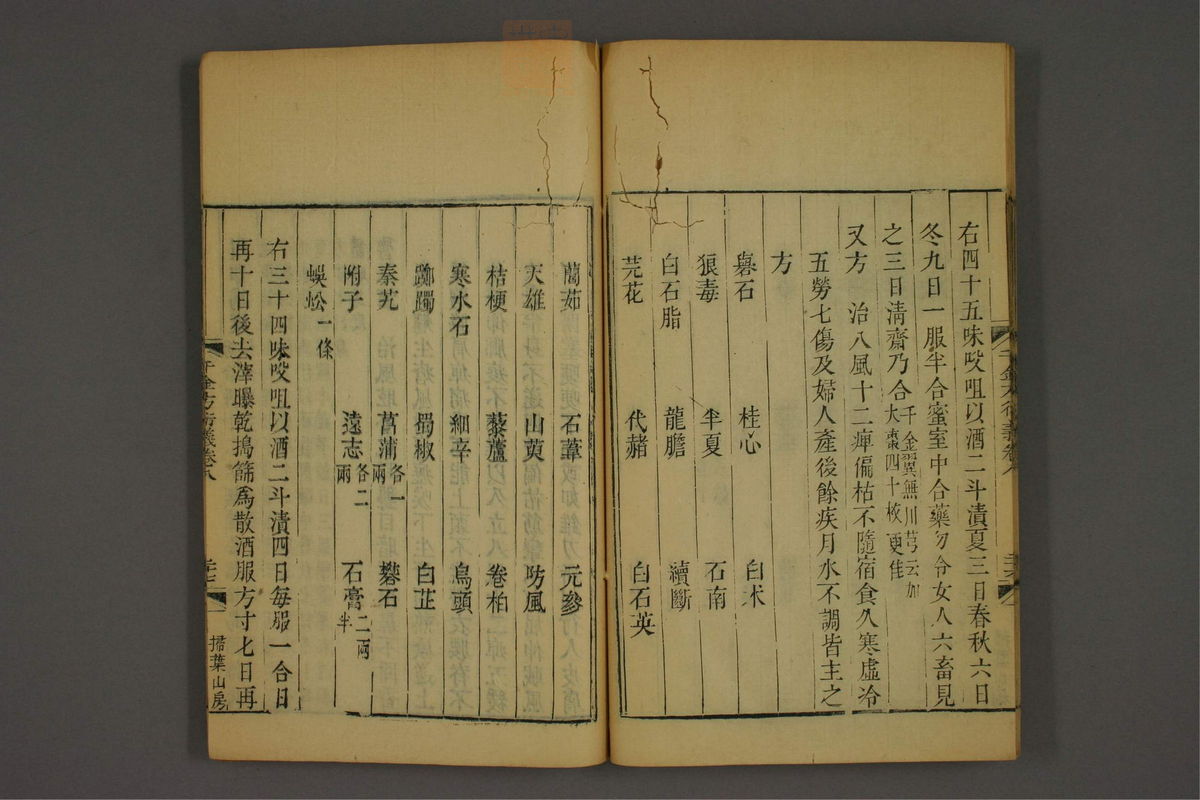 右四十五味㕮咀以酒二斗漬夏三日春秋六日
冬九日一服半合蜜室中合藥勿令女人六畜見
之三日清齋乃合千金翼無川芎云加大棗四十枚更佳
又方　治八風十二痺偏枯不隨宿食久寒虛冷
五勞七傷及婦人產後餘疾月水不調皆主之
方
礜石　桂心　白朮
狼毒　半夏　石南
白石脂　龍膽　續斷
芫花　代赭　白石英
千金方衍義卷八
䕡茹　石葦　元參
天雄　山萸　防風
桔梗　藜蘆　卷柏
寒水石　細辛　烏頭
躑躅　蜀椒　白芷
秦艽　菖蒲各一兩　礬石
附子　遠志各二兩　石膏二兩半
蜈蚣一條
右三十四味㕮咀以酒二斗漬四日每服一合日
再十日後去滓曝乾搗篩爲散酒服方寸七日再
千金方衍義卷八
掃葉山房